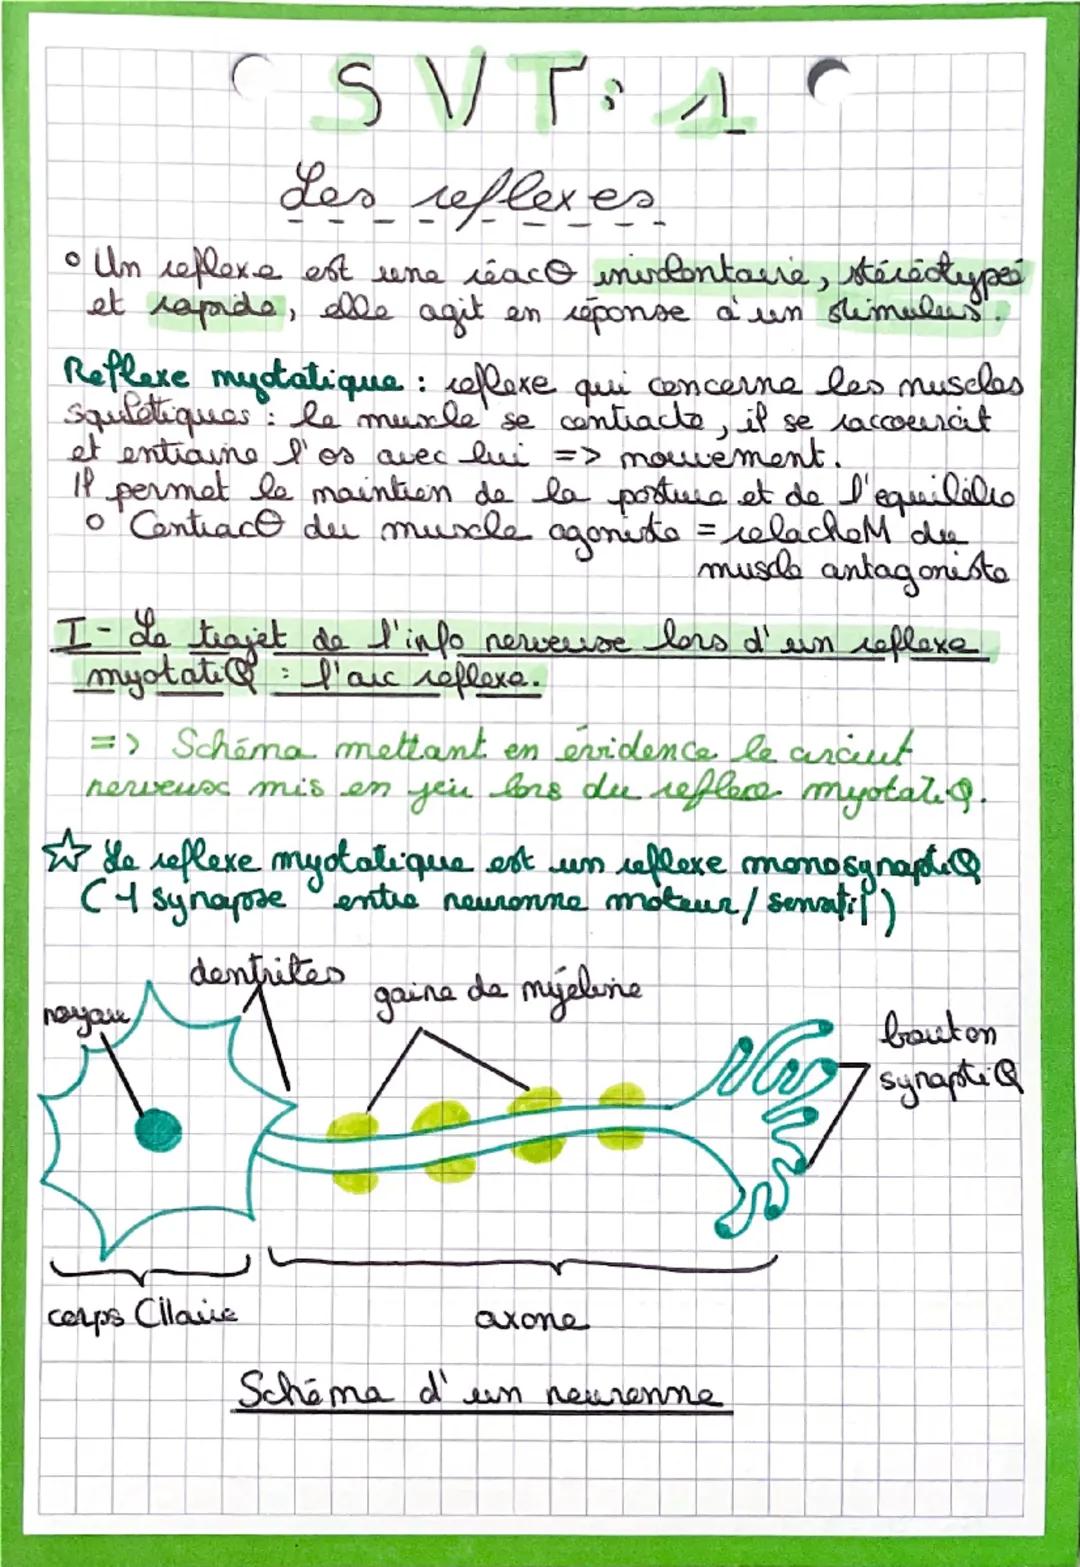 SVT: 1
Les reflexes
° Un reflexe est une réacΘ involontaire, stéréotypée
et rapide, elle agit en réponse à un stimulus.
Reflexe myotatique : reflexe qui concerne les muscles
squeletiques : le muscle se contracte, il se raccourcit
et entraine l'os avec lui => mouvement.
Il permet le maintien de la posture et de l'equilibre
° ContracΘ du muscle agoniste = relacheM du
muscle antagoniste
I- Le trajet de l'info nerveuse lors d'un reflexe
myotatiQ : l'arc reflexe.
=> Schéma mettant en évidence le circiut
nerveux mis en jeu lors du reflexe myotatiQ.
☆ Le reflexe myotatique est un reflexe monosynaptiQ
(1 synapse entre neuronne moteur/sensitif)
dentrites
gaine de myéline
noyau
bouton
synaptiQ
corps Cllaire
axone
Schéma d'un neuronne